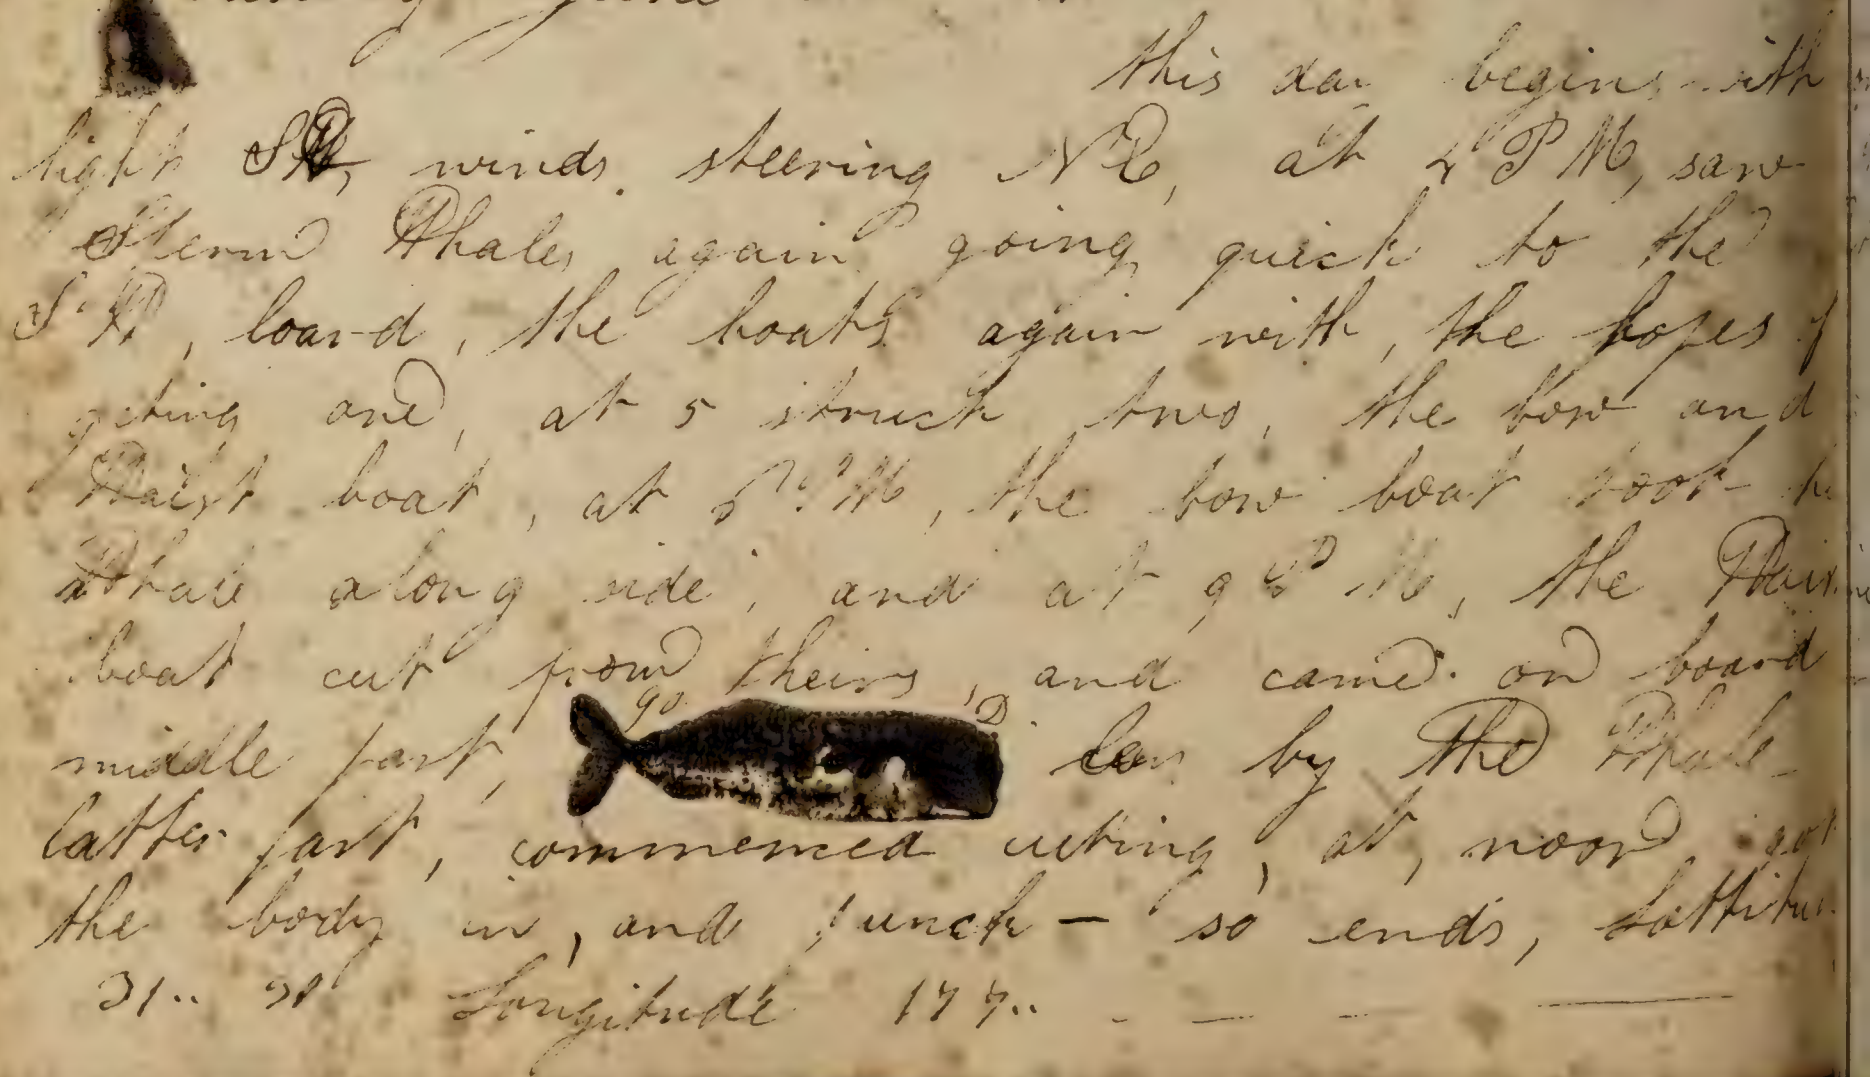 this day begins with
light SW, winds. steering NE, at 4 PM, saw
Sperm Whales again going quick to the
S W, loard, the boats again with, the hopes of
geting one, at 5 struck two, the bow and
Waist boat, at PM, the bow boat took the
Whale along side, and at 9 PM, the Waist
boat cut from theirs, and came on board
middle part, 90 D lay by the Whale
latter part, commenced cuting, at, noon got
the body in, and junck - so ends, Lattitude
31.. Longitude 177..